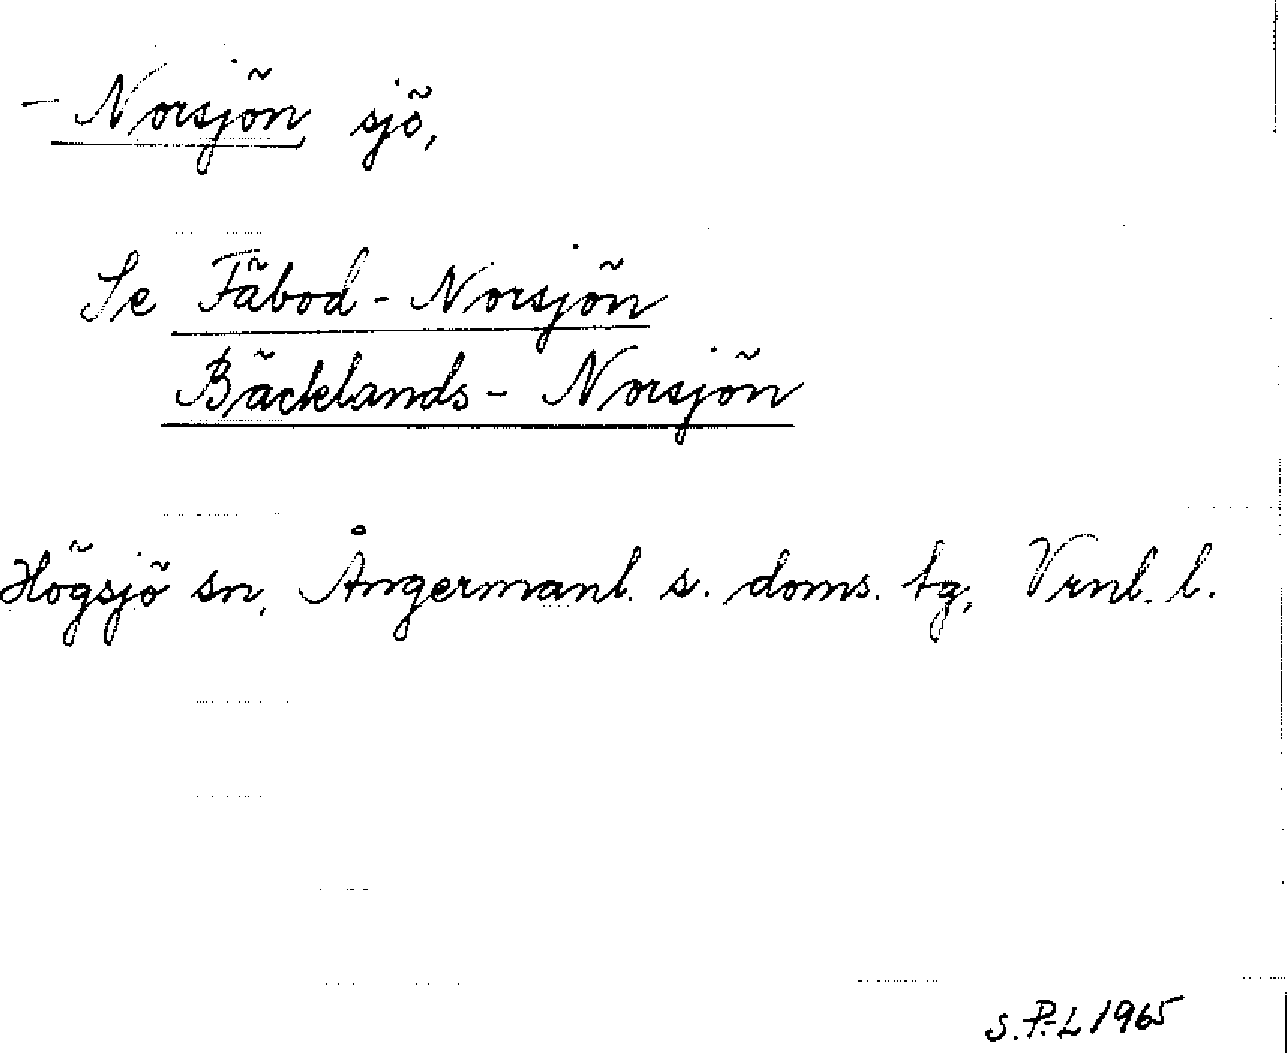 - Norsjön sjö,
Se Fäbod - Norsjön
Bäcklands - Norsjön
Högsjö sn, Ångermanl. s. doms. tg, Vrnl. l.
S. P.-L 1965